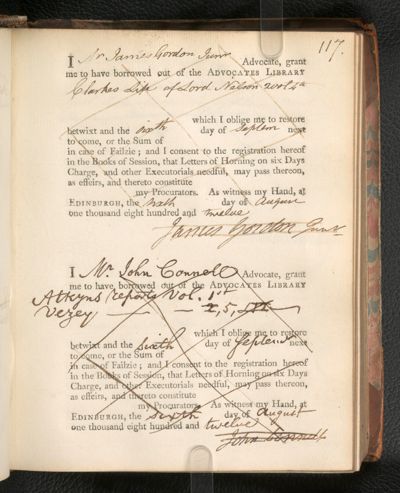 117.
I Mr James Gordon Junr Advocate, grant
me to have borrowed out of the ADVOCATES LIBRARY
Clarkes Life of Lord Nelson 2 vols 4to
which I oblige me to restore
betwixt and the sixth day of Septem next
to come, or the Sum of
in case of Failzie; and I consent to the registration hereof
in the Books of Session, that Letters of Horning on six Days
Charge, and other Executorials needful, may pass thereon,
as effeirs, and thereto constitute
my Procurators. As witness my Hand, at
EDINBURGH, the sixth day of August
one thousand eight hundred and twelve
James Gordon Junr
I Mr. John Connell Advocate, grant
me to have borrowed out of the ADVOCATES LIBRARY
Atkyns reports Vol. 1st
Vezey — — 2, 5,
which I oblige me to restore
betwixt and the sixth day of Septem next
to come, or the Sum of
in case of Failzie; and I consent to the registration hereof
in the Books of Session, that Letters of Horning on six Days
Charge, and other Executorials needful, may pass thereon,
as effeirs, and thereto constitute
my Procurators. As witness my Hand, at
EDINBURGH, the sixth day of August
one thousand eight hundred and twelve
John Connell